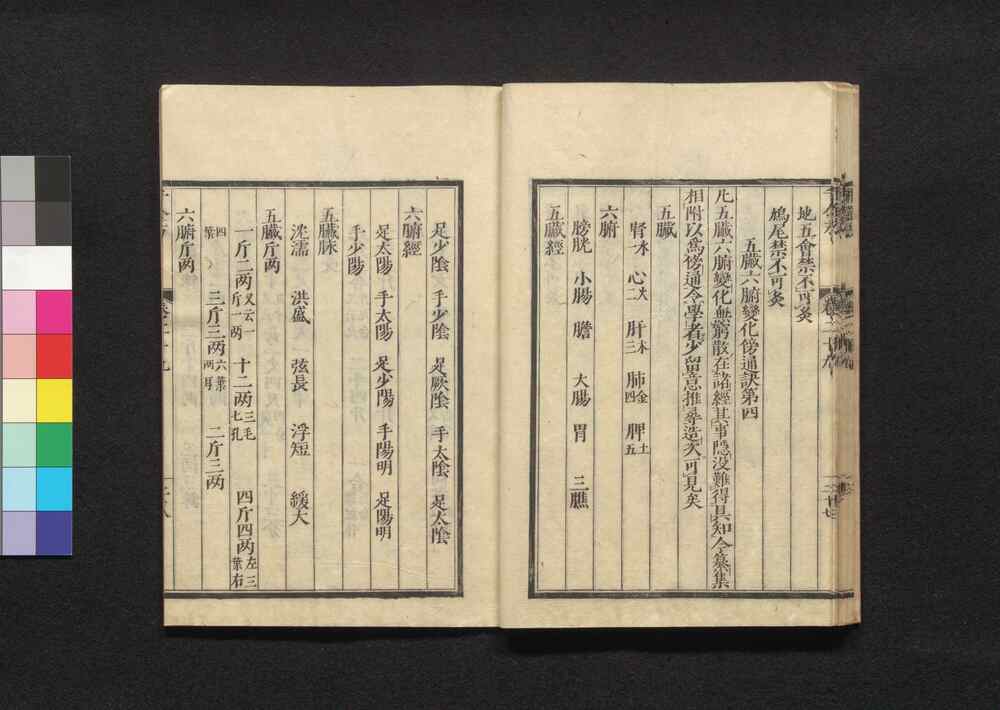 地五會禁不可灸
鳩尾禁不可灸
五臟六腑變化傍通訣第四
凡五臟六腑變化無窮散在諸經其事隱没難得具知今纂集
相附以爲傍通令學者少留意推尋造次可見矣
五臟
腎水一 心火二 肝木三 肺金四 脾土五
六腑
膀胱 小腸 膽 大腸 胃 三膲
五臟經
足少陰 手少陰 足厥陰 手太陰 足太陰
六腑經
足太陽 手太陽 足少陽 手陽明 足陽明
手少陽
五臟脉
沈濡 洪盛 弦長 浮短 緩大
五臟斤兩
一斤二两又云一斤一两 十二两三毛七孔 四斤四两左三葉右
四葉 三斤三两六葉两耳 二斤三两
六腑斤两